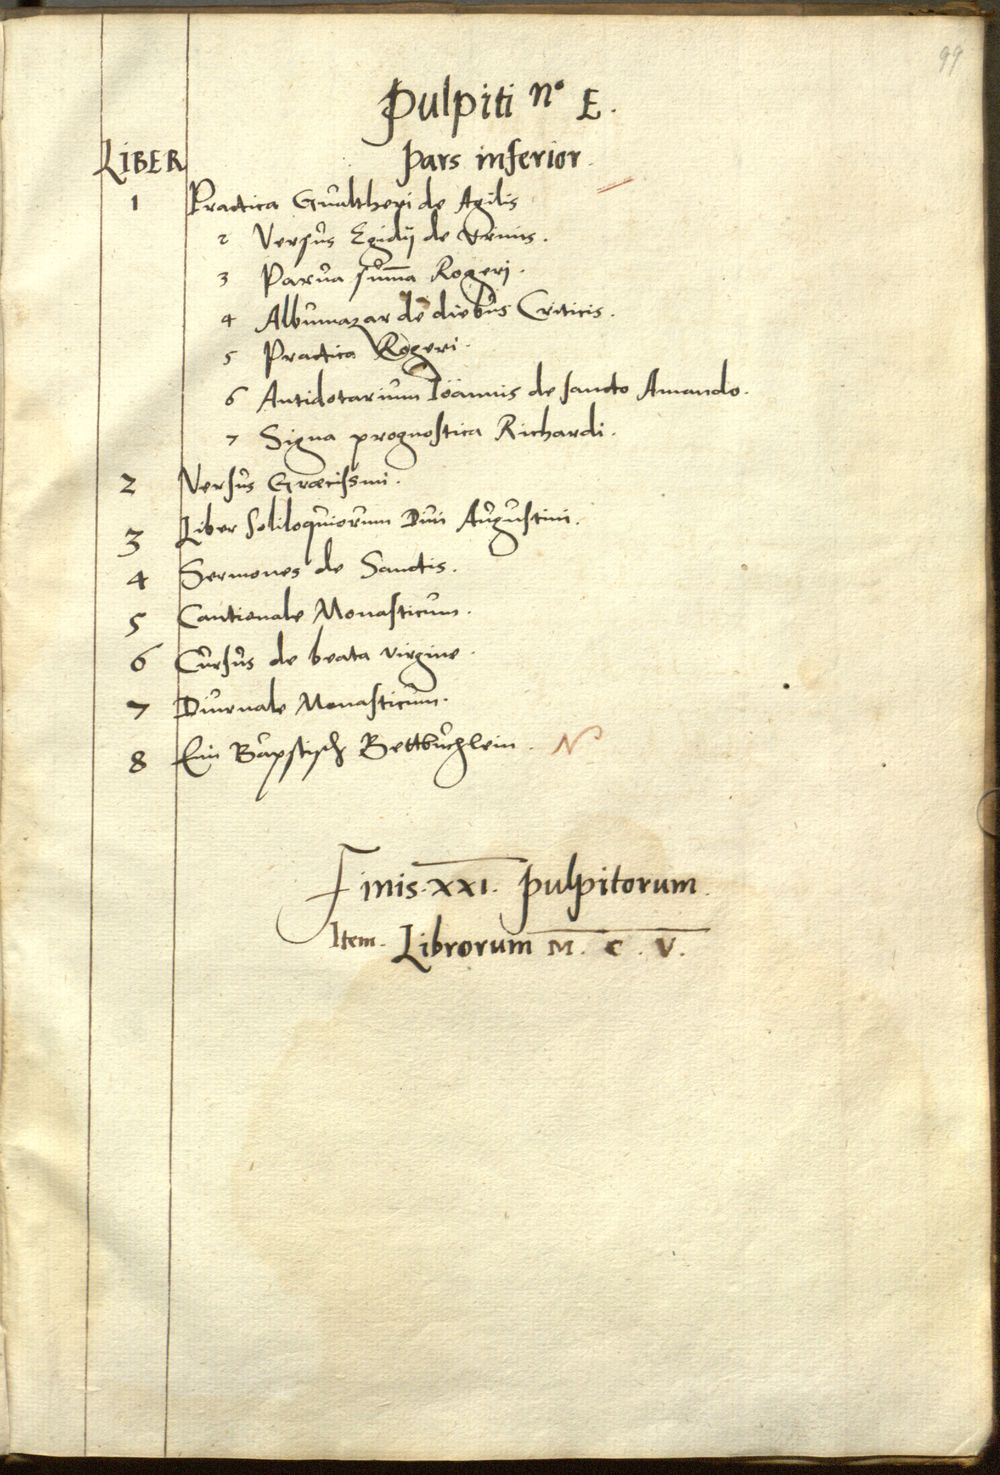 99
Pulpiti nº E.
LIBER Pars inferior.
1 Practica Gualtheri de Agilis
2 Versus Egidij de Vrinis.
3 Parua sum̄a Rogerj.
4 Albumazar de diebus Criticis.
5 Practica Rogeri.
6 Antidotarium Ioannis de sancto Amando.
7 Signa prognostica Richardi.
2 Versus Græcissmi.
3 Liber Soliloquiorum Diui Augustini.
4 Sermones de Sanctis.
5 Cantionale Monasticum.
6 Cursus de beata virgine.
7 Diurnale Monasticum.
8 Ein Bäpstisch Bettbuchlein. N
Finis. XXI. pulpitorum.
Item. Librorum M. C. V.